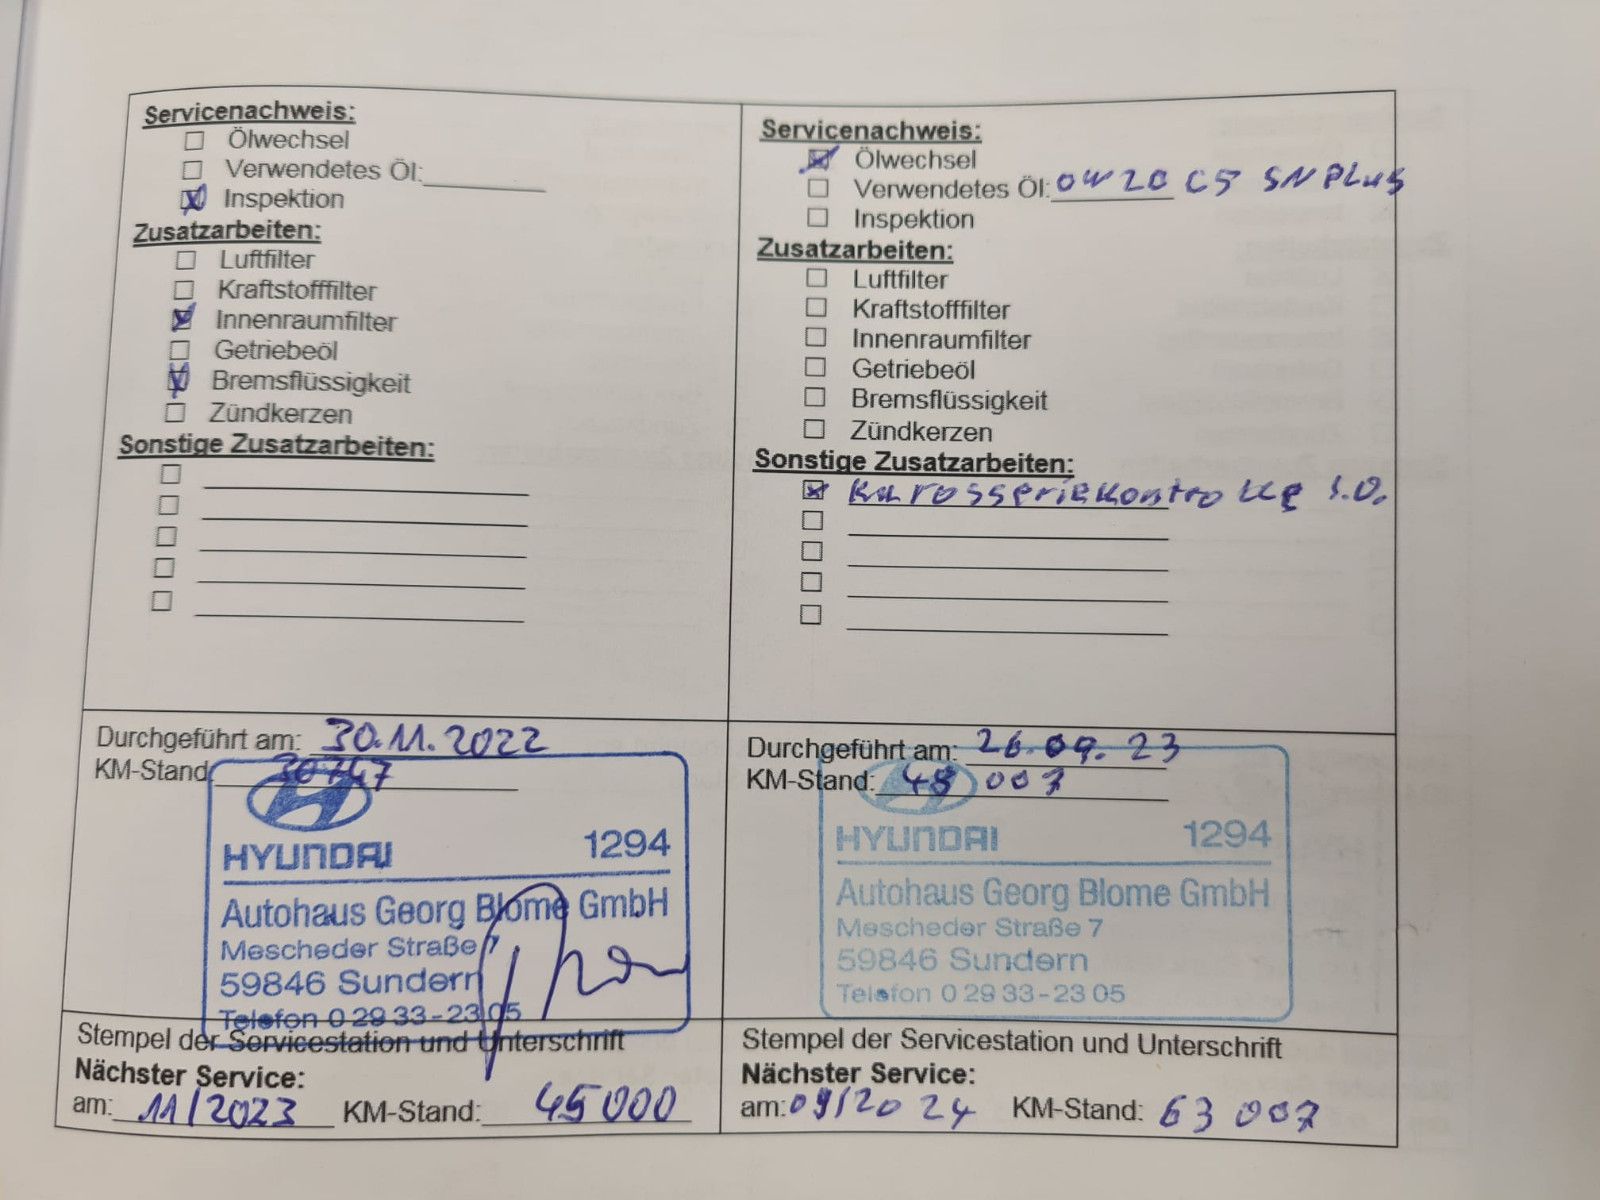 Servicenachweis:
☐ Ölwechsel
☐ Verwendetes Öl:
☒ Inspektion
Zusatzarbeiten:
☐ Luftfilter
☐ Kraftstofffilter
☒ Innenraumfilter
☐ Getriebeöl
☒ Bremsflüssigkeit
☐ Zündkerzen
Sonstige Zusatzarbeiten:
Durchgeführt am: 30.11.2022
KM-Stand 30747
HYUNDAI 1294
Autohaus Georg Blome GmbH
Mescheder Straße 7
59846 Sundern
Telefon 0 29 33-23 05
Stempel der Servicestation und Unterschrift
Nächster Service:
am: 11/2023 KM-Stand: 45000
Servicenachweis:
☒ Ölwechsel
☐ Verwendetes Öl: 0W20 C5 SN PLUS
☐ Inspektion
Zusatzarbeiten:
☐ Luftfilter
☐ Kraftstofffilter
☐ Innenraumfilter
☐ Getriebeöl
☐ Bremsflüssigkeit
☐ Zündkerzen
Sonstige Zusatzarbeiten:
☒ Karosseriekontrolle i.O.
Durchgeführt am: 26.09.23
KM-Stand: 48 007
HYUNDAI 1294
Autohaus Georg Blome GmbH
Mescheder Straße 7
59846 Sundern
Telefon 0 29 33-23 05
Stempel der Servicestation und Unterschrift
Nächster Service:
am: 09/2024 KM-Stand: 63 007